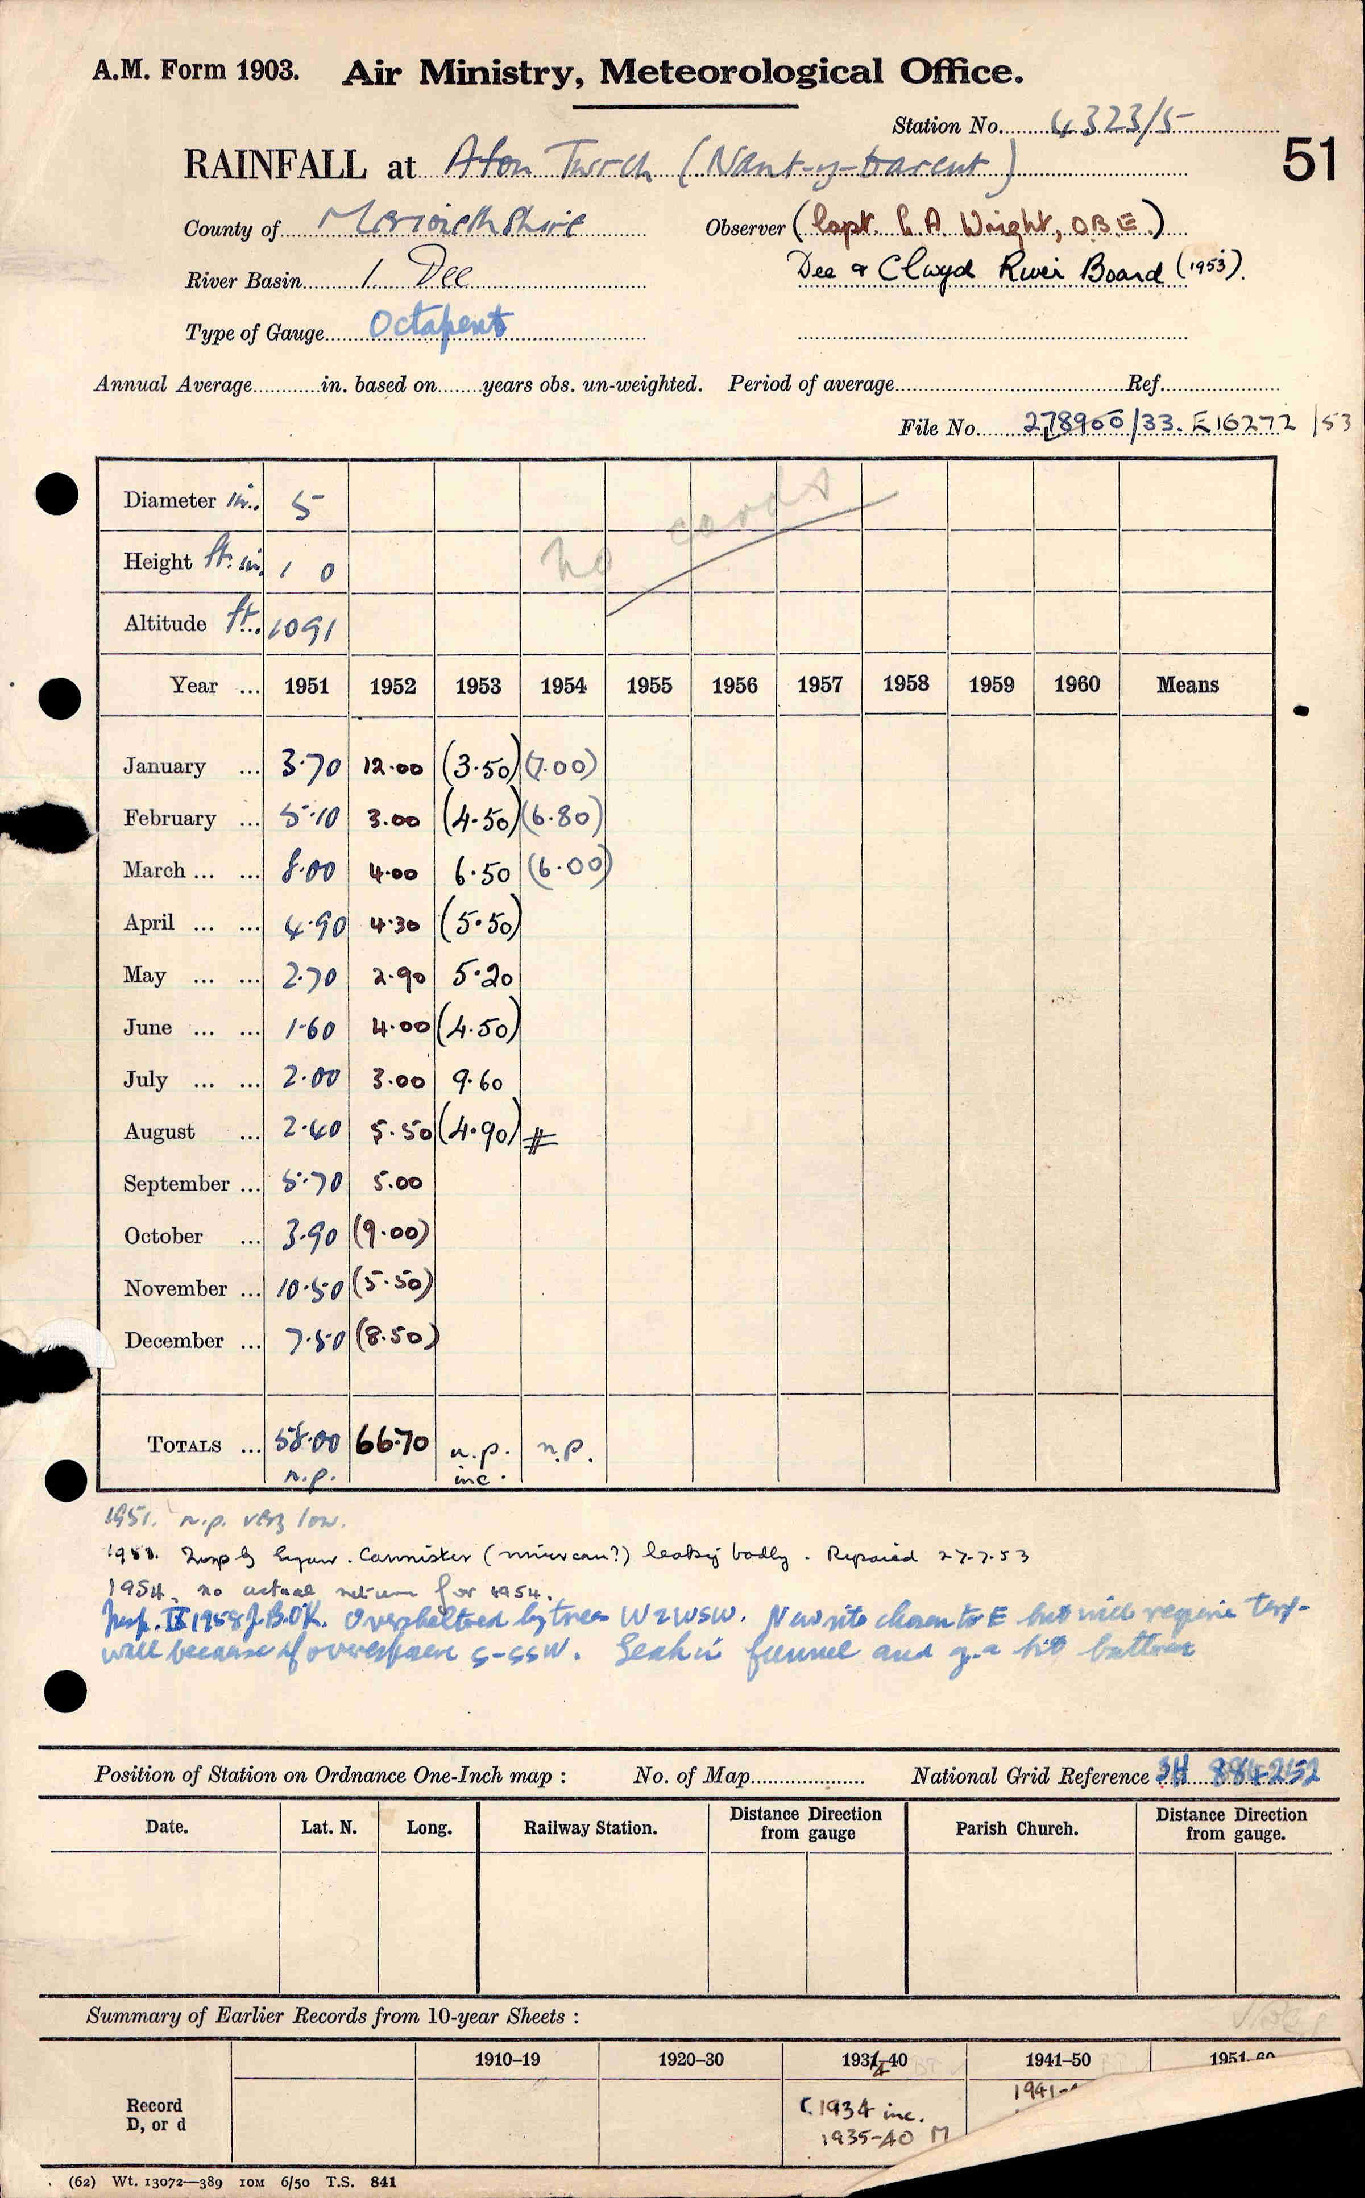 A.M. Form 1903. Air Ministry, Meteorological Office.
Station No. 4323/5
51
RAINFALL at Afon Twrch (Nant-y-barcut)
County of Merionethshire Observer (Capt. C. A. Wright, O.B.E.)
River Basin 1. Dee Dee & Clwyd River Board (1953).
Type of Gauge Octapent
Annual Average in. based on years obs. un-weighted. Period of average Ref.
File No. 278900/33. E16272/53
no cards
Diameter in. 5
Height ft. in. 1 0
Altitude ft. 1091
Year ... 1951 1952 1953 1954 1955 1956 1957 1958 1959 1960 Means
January ... 3.70 12.00 (3.50) (7.00)
February ... 5.10 3.00 (4.50) (6.80)
March ... ... 8.00 4.00 6.50 (6.00)
April ... ... 4.90 4.30 (5.50)
May ... ... 2.70 2.90 5.20
June ... ... 1.60 4.00 (4.50)
July ... ... 2.00 3.00 9.60
August ... 2.40 5.50 (4.90) #
September ... 5.70 5.00
October ... 3.90 (9.00)
November ... 10.50 (5.50)
December ... 7.50 (8.50)
TOTALS ... 58.00 66.70 n.p. n.p.
n.p. inc.
1951. n.p. very low.
1953. Cannister ( ) leaking badly. Repaired 27.7.53
1954. no actual return for 1954.
Insp. IX 1958 J.B. OK. Oversheltered by trees W 2 WSW. New site chosen to E but will require turf-
wall because of overexposure S-SSW. Leak in funnel and g.a bit battered
Position of Station on Ordnance One-Inch map : No. of Map National Grid Reference SH 884252
Date. Lat. N. Long. Railway Station. Distance Direction from gauge Parish Church. Distance Direction from gauge.
Summary of Earlier Records from 10-year Sheets :
1910–19 1920–30 1931–40 1941–50 1951-60
4
Record
D, or d
1934 inc. 1941-
1935-40 M
(62) Wt. 13072—389 10M 6/50 T.S. 841